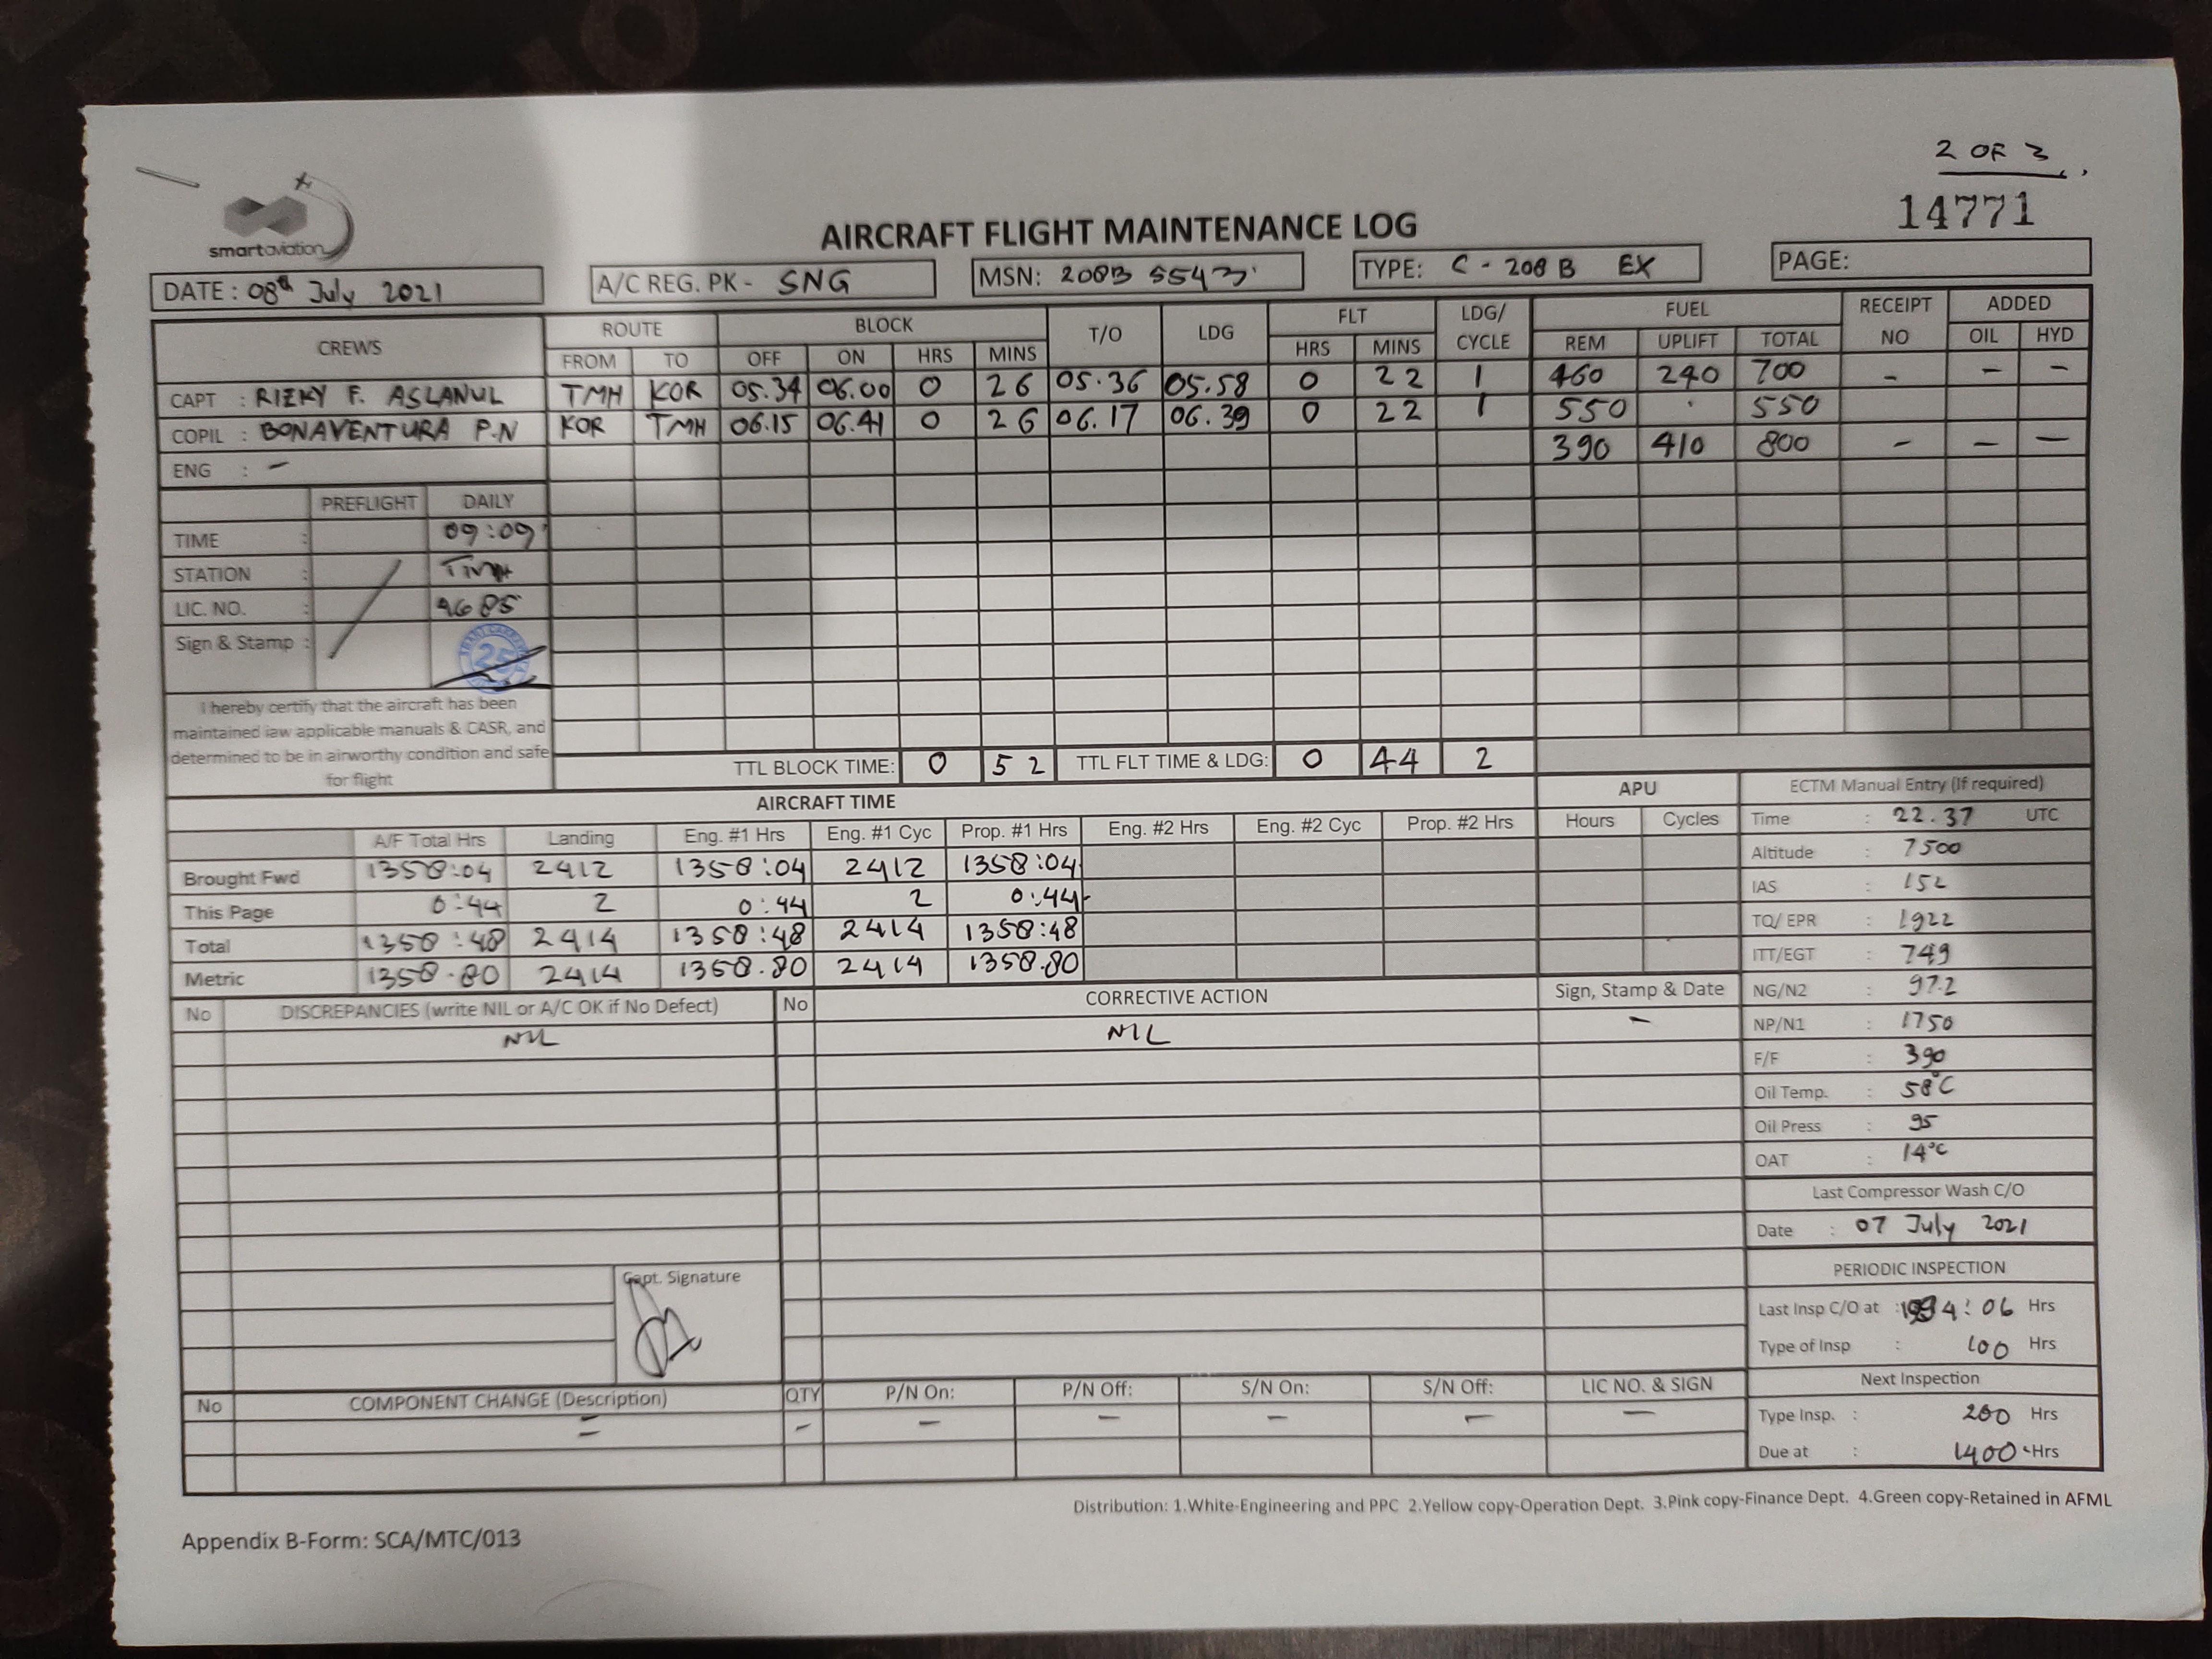 2 OF 3
14771
smartaviation
AIRCRAFT FLIGHT MAINTENANCE LOG
DATE : 08th July 2021 A/C REG. PK - SNG MSN: 208B 5543 TYPE: C - 208 B EX PAGE:
CREWS ROUTE BLOCK T/O LDG FLT LDG/ CYCLE FUEL RECEIPT NO ADDED
FROM TO OFF ON HRS MINS HRS MINS REM UPLIFT TOTAL OIL HYD
CAPT : RIZKY F. ASLANUL TMH KOR 05.34 06.00 0 26 05.36 05.58 0 22 1 460 240 700 - - -
COPIL : BONAVENTURA P.N KOR TMH 06.15 06.41 0 26 06.17 06.39 0 22 1 550 . 550
ENG : - 390 410 800 - - -
PREFLIGHT DAILY
TIME : 09:09
STATION : TMH
LIC. NO. : 4685
Sign & Stamp : 25
I hereby certify that the aircraft has been
maintained iaw applicable manuals & CASR, and
determined to be in airworthy condition and safe
for flight
TTL BLOCK TIME: 0 52 TTL FLT TIME & LDG: 0 44 2
AIRCRAFT TIME APU ECTM Manual Entry (If required)
A/F Total Hrs Landing Eng. #1 Hrs Eng. #1 Cyc Prop. #1 Hrs Eng. #2 Hrs Eng. #2 Cyc Prop. #2 Hrs Hours Cycles Time : 22.37 UTC
Brought Fwd 1358:04 2412 1358:04 2412 1358:04 Altitude : 7500
This Page 0:44 2 0:44 2 0:44 IAS : 152
Total 1358:48 2414 1358:48 2414 1358:48 TQ/ EPR : 1922
Metric 1358.80 2414 1358.80 2414 1358.80 ITT/EGT : 749
No DISCREPANCIES (write NIL or A/C OK if No Defect) No CORRECTIVE ACTION Sign, Stamp & Date NG/N2 : 97.2
NIL NIL - NP/N1 : 1750
F/F : 390
Oil Temp. : 58°C
Oil Press : 95
OAT : 14°C
Last Compressor Wash C/O
Date : 07 July 2021
Capt. Signature PERIODIC INSPECTION
Last Insp C/O at : Hrs
Type of Insp : 100 Hrs
No COMPONENT CHANGE (Description) QTY P/N On: P/N Off: S/N On: S/N Off: LIC NO. & SIGN Next Inspection
- - - - - - - Type Insp. : 200 Hrs
Due at : 1400 Hrs
Distribution: 1.White-Engineering and PPC 2.Yellow copy-Operation Dept. 3.Pink copy-Finance Dept. 4.Green copy-Retained in AFML
Appendix B-Form: SCA/MTC/013